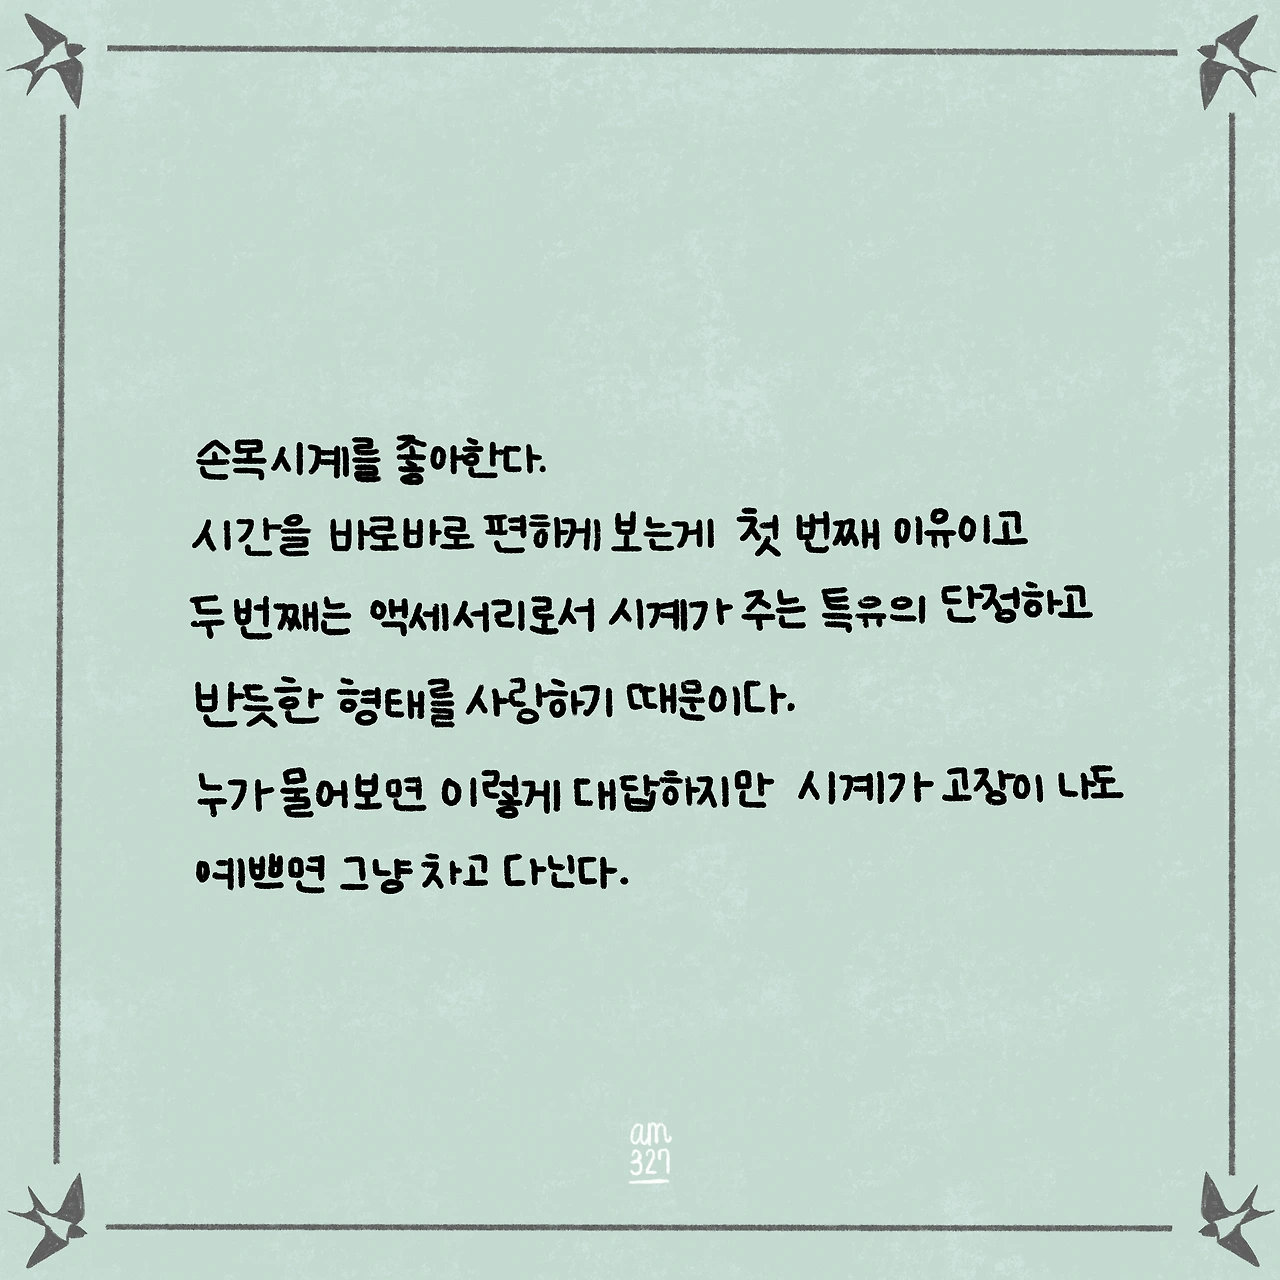 손목시계를 좋아한다.
시간을 바로바로 편하게 보는게 첫 번째 이유이고
두번째는 액세서리로서 시계가 주는 특유의 단정하고
반듯한 형태를 사랑하기 때문이다.
누가물어보면 이렇게 대답하지만 시계가 고장이 나도
예쁘면 그냥 차고 다닌다.
am
327